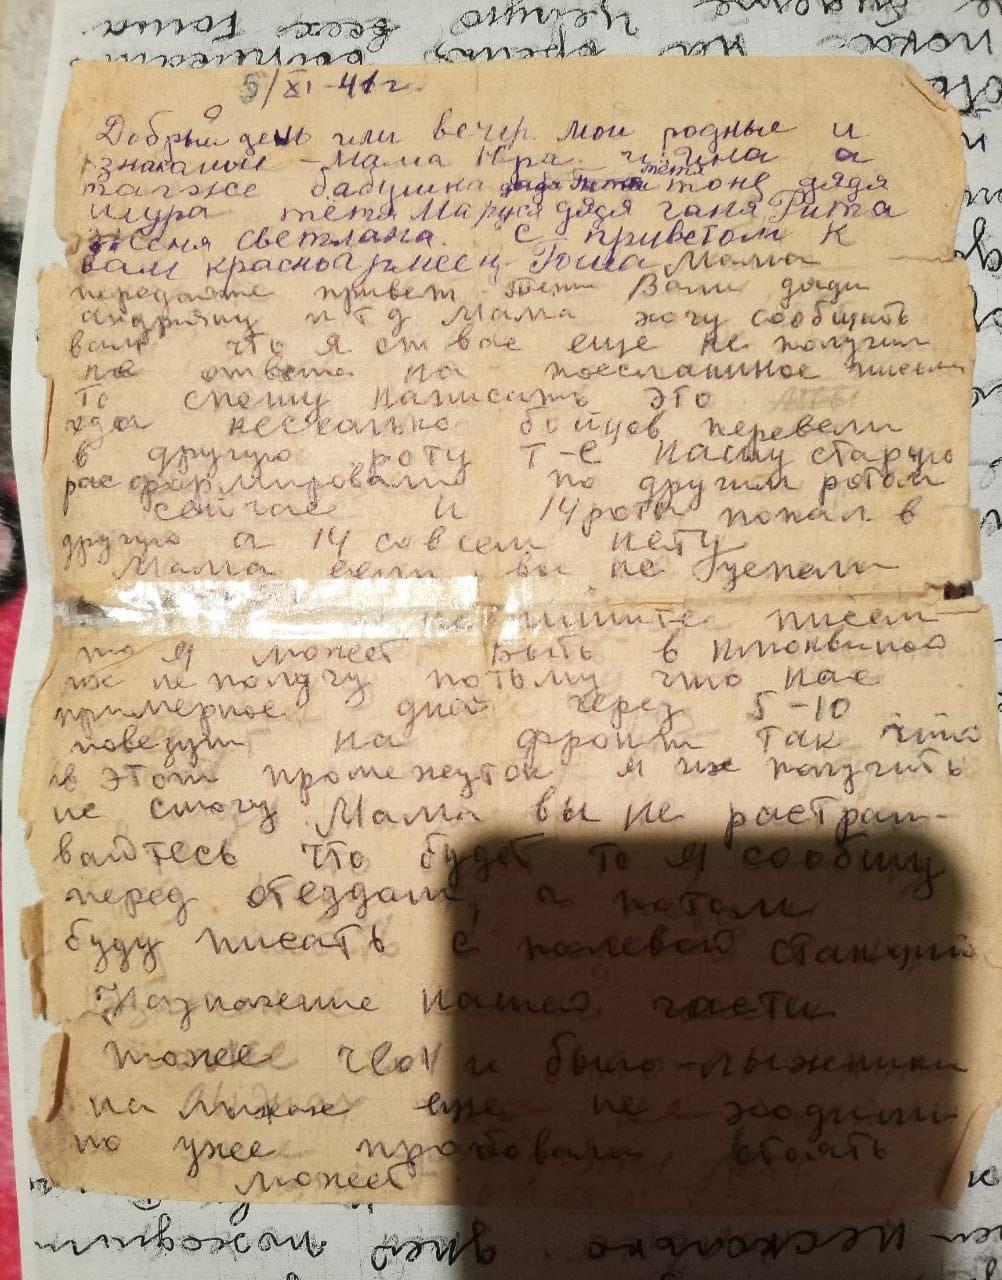 5/XI-41 г.
Добрый день или вечер мои родные и
знакомые - Мама Нюра и Яна а
тагже бабушка тётя тоня дядя
шура тётя Маруся дядя ганя Рита
Женя светлана. С приветом к
вам красноармеец Гоша Мама
передайте привет тети Вали дяди
андряну и т д Мама хочу сообщить
вам что я от вас еще не получил
не ответа на посланиное письмо
то спешу написать это
нескалько бойцов перевели
в другую роту т-е нашу старую
расформировали по другим ротам
сейчас и 14 рота попал в
другую а 14 совсем нету
Мама если вы не успели
не пишите писем
то я может быть в
их не получу потому что нас
примерное дней через 5-10
повезут на фронт так что
в этот промежуток я их получить
не смогу Мама вы не растраи-
вайтесь что будет то я сообщу
перед отездам, а патом
буду писать с полевой станции
Назначение нашей части
тоже что и было - лыжники
на лыжах еще не ходили
но уже пробовали стоять
может
пока на время
всех Гоша
несколько дней походит